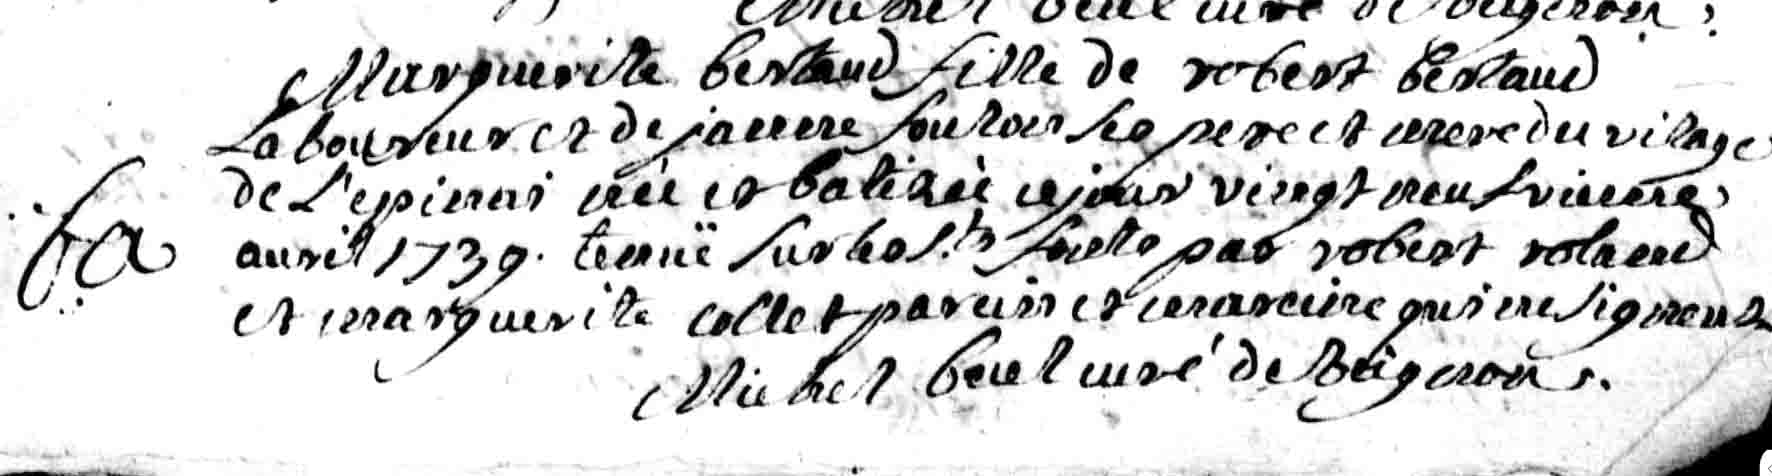 Michel beul curé de Beigeron.
Marguerite bertaud fille de robert bertaud
Laboureur et de janne foulon ses pere et mere du vilage
de L'epinai née et batizée ce jour vingt neufvieme
ba
auvril 1739. tenuë sur les S.ts fonts par robert rolland
et marguerite collet parein et mareine qui ne signent
Michel beul curé de Beigeron.